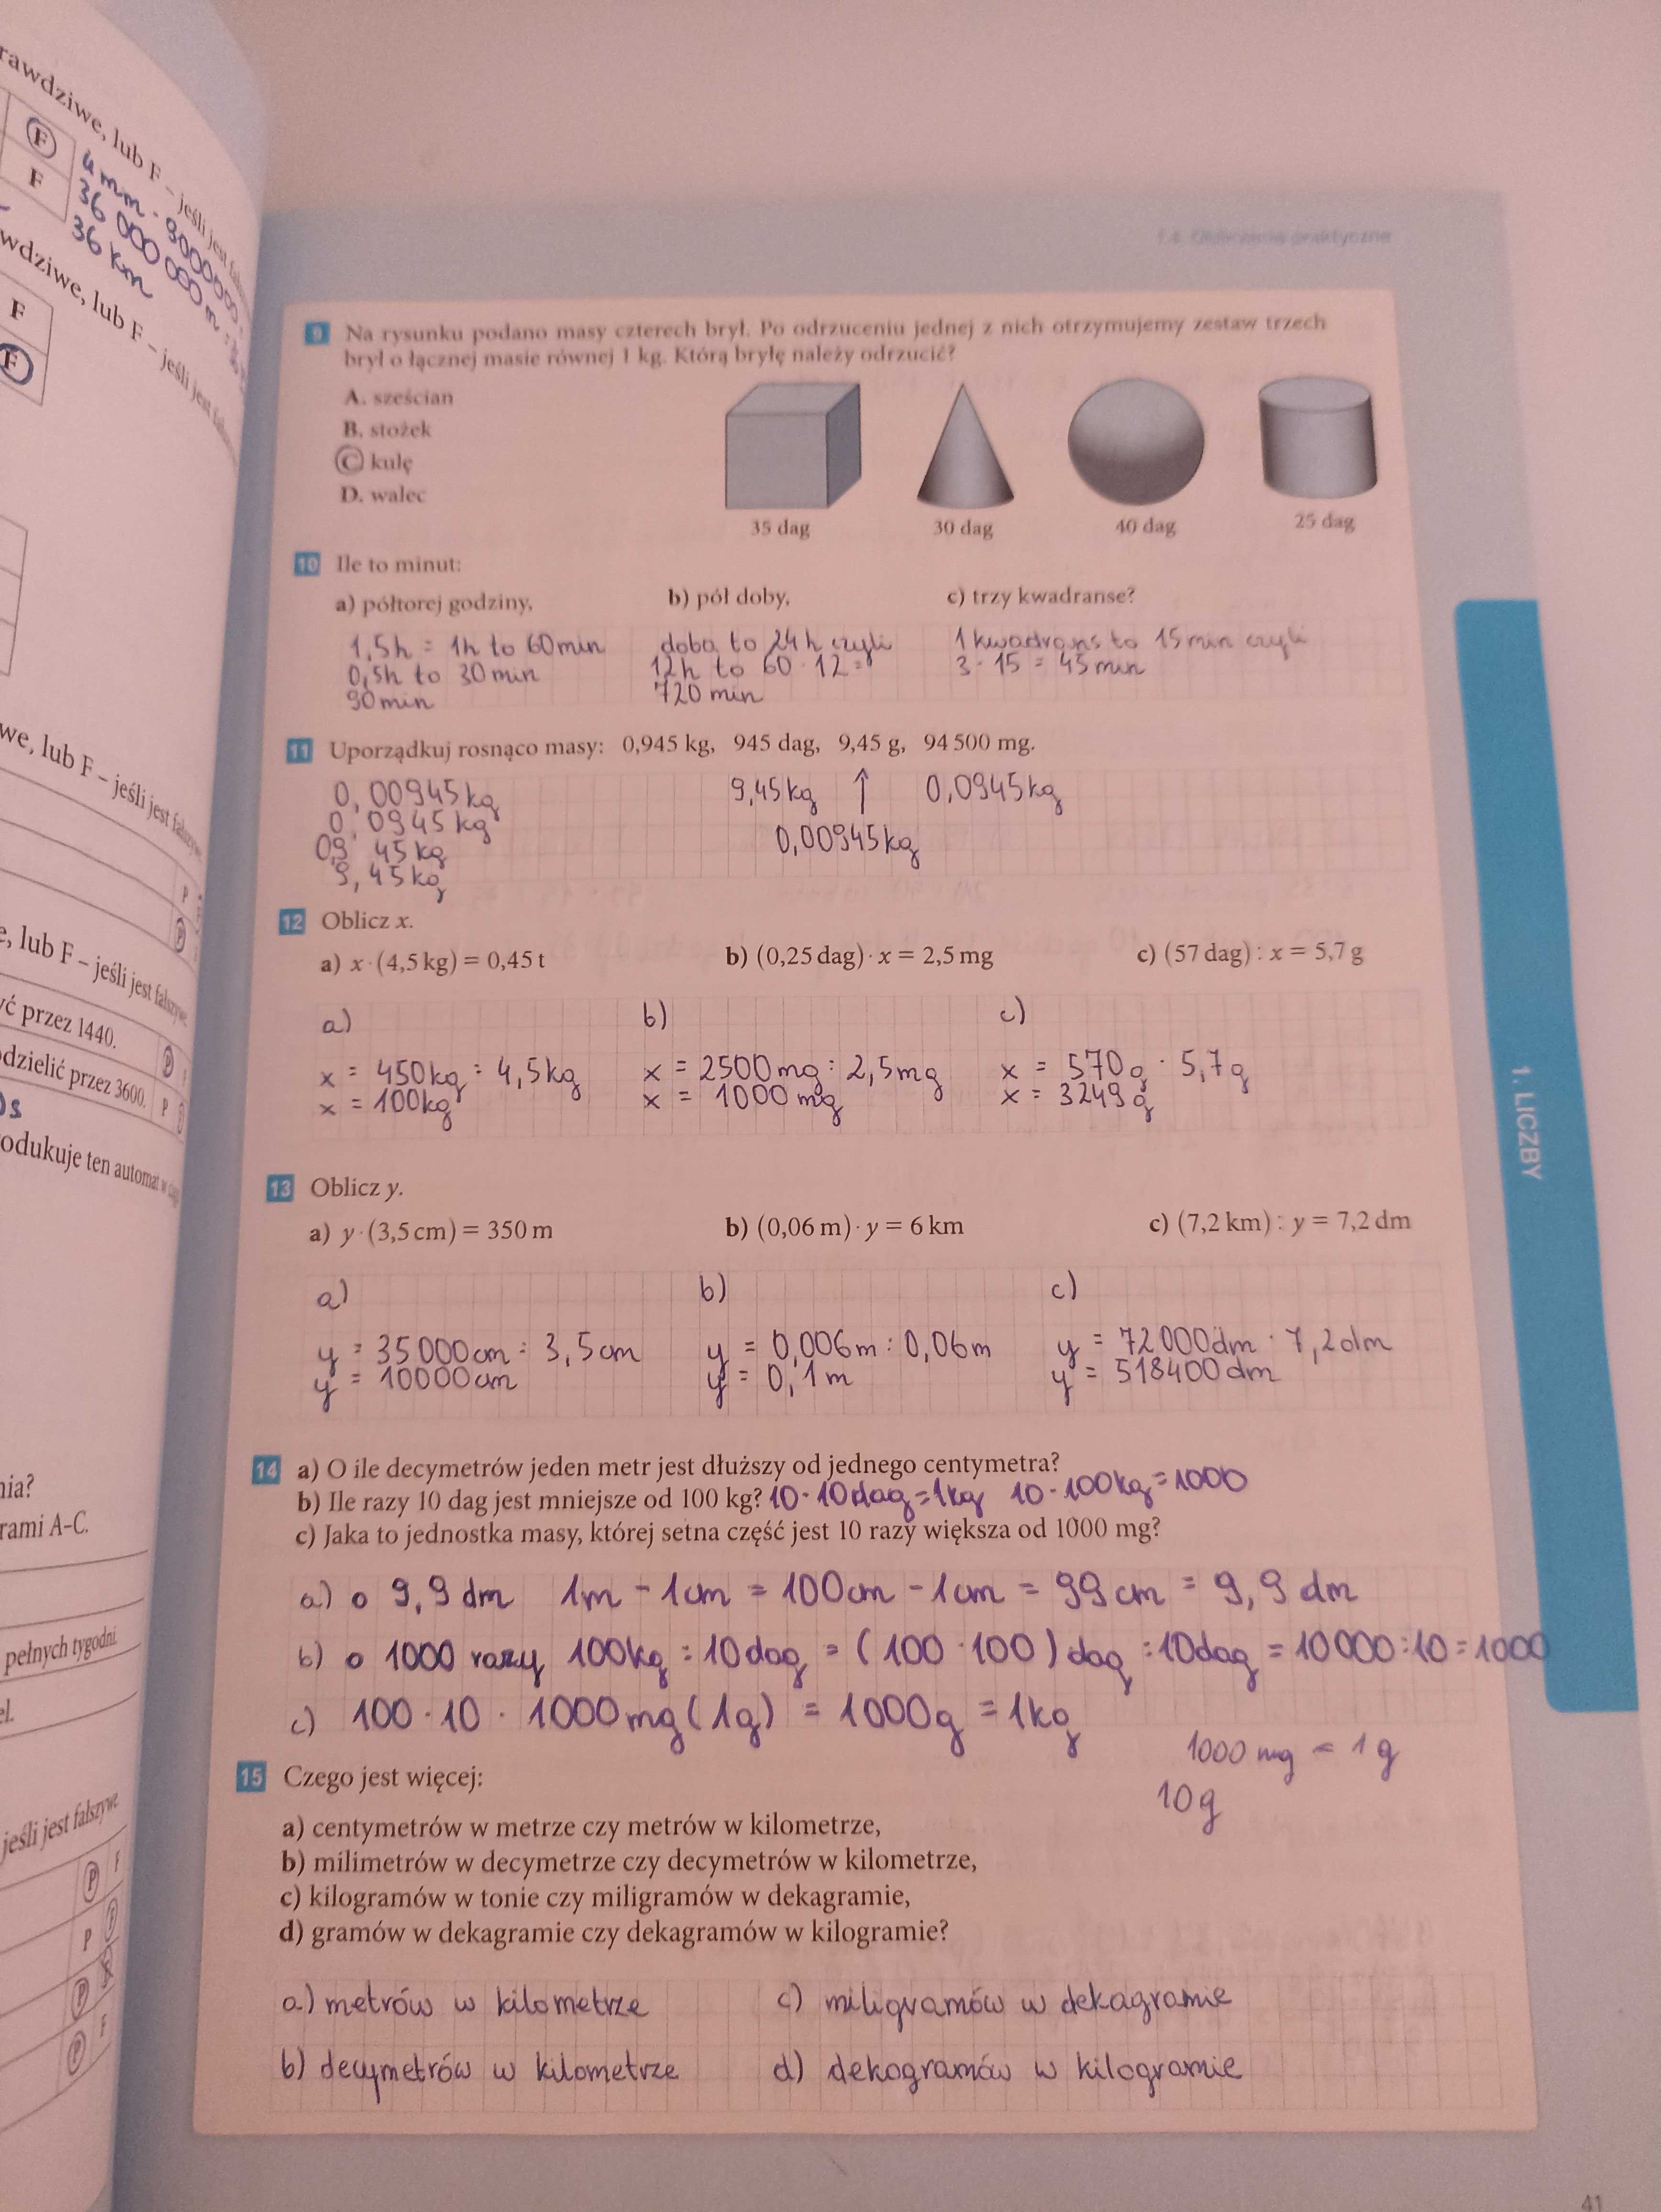 rawdziwe, lub F – jeśli jest
F
F
4 mm · 9000000
36 000 000 m
36 km
wdziwe, lub F – jeśli jest
F
F
we, lub F – jeśli jest fałszywe
P
P
e, lub F – jeśli jest fałszywe
yć przez 1440.
P
odzielić przez 3600.
P
0s
odukuje ten automat w
nia?
rami A-C.
pełnych tygodni
el.
jeśli jest fałszywe
P
F
P
P
P
F
1.4. Obliczenia praktyczne
9 Na rysunku podano masy czterech brył. Po odrzuceniu jednej z nich otrzymujemy zestaw trzech
brył o łącznej masie równej 1 kg. Którą bryłę należy odrzucić?
A. sześcian
B. stożek
C kulę
D. walec
35 dag 30 dag 40 dag 25 dag
10 Ile to minut:
a) półtorej godziny, b) pół doby, c) trzy kwadranse?
1,5h = 1h to 60min doba to 24h czyli 1 kwadrans to 15min czyli
0,5h to 30min 12h to 60 · 12 = 3 · 15 = 45min
90min 720min
11 Uporządkuj rosnąco masy: 0,945 kg, 945 dag, 9,45 g, 94 500 mg.
0,00945kg 9,45kg ↑ 0,0945kg
0,0945kg 0,00945kg
0,9 45kg
9,45kg
12 Oblicz x.
a) x · (4,5 kg) = 0,45 t b) (0,25 dag) · x = 2,5 mg c) (57 dag) : x = 5,7 g
a) b) c)
x = 450kg : 4,5kg x = 2500mg : 2,5mg x = 570g · 5,7g
x = 100kg x = 1000mg x = 3249g
13 Oblicz y.
a) y · (3,5 cm) = 350 m b) (0,06 m) · y = 6 km c) (7,2 km) : y = 7,2 dm
a) b) c)
y = 35000cm : 3,5cm y = 0,006m : 0,06m y = 72000dm · 7,2dm
y = 10000cm y = 0,1m y = 518400dm
14 a) O ile decymetrów jeden metr jest dłuższy od jednego centymetra?
b) Ile razy 10 dag jest mniejsze od 100 kg? 10 · 10dag = 1kg 10 · 100kg = 1000
c) Jaka to jednostka masy, której setna część jest 10 razy większa od 1000 mg?
a) o 9,9 dm 1m - 1cm = 100cm - 1cm = 99cm = 9,9 dm
b) o 1000 razy 100kg : 10dag = (100 · 100) dag : 10dag = 10000 : 10 = 1000
c) 100 · 10 · 1000mg (1g) = 1000g = 1kg
1000 mg = 1g
10g
15 Czego jest więcej:
a) centymetrów w metrze czy metrów w kilometrze,
b) milimetrów w decymetrze czy decymetrów w kilometrze,
c) kilogramów w tonie czy miligramów w dekagramie,
d) gramów w dekagramie czy dekagramów w kilogramie?
a) metrów w kilometrze c) miligramów w dekagramie
b) decymetrów w kilometrze d) dekogramów w kilogramie
1. LICZBY
41